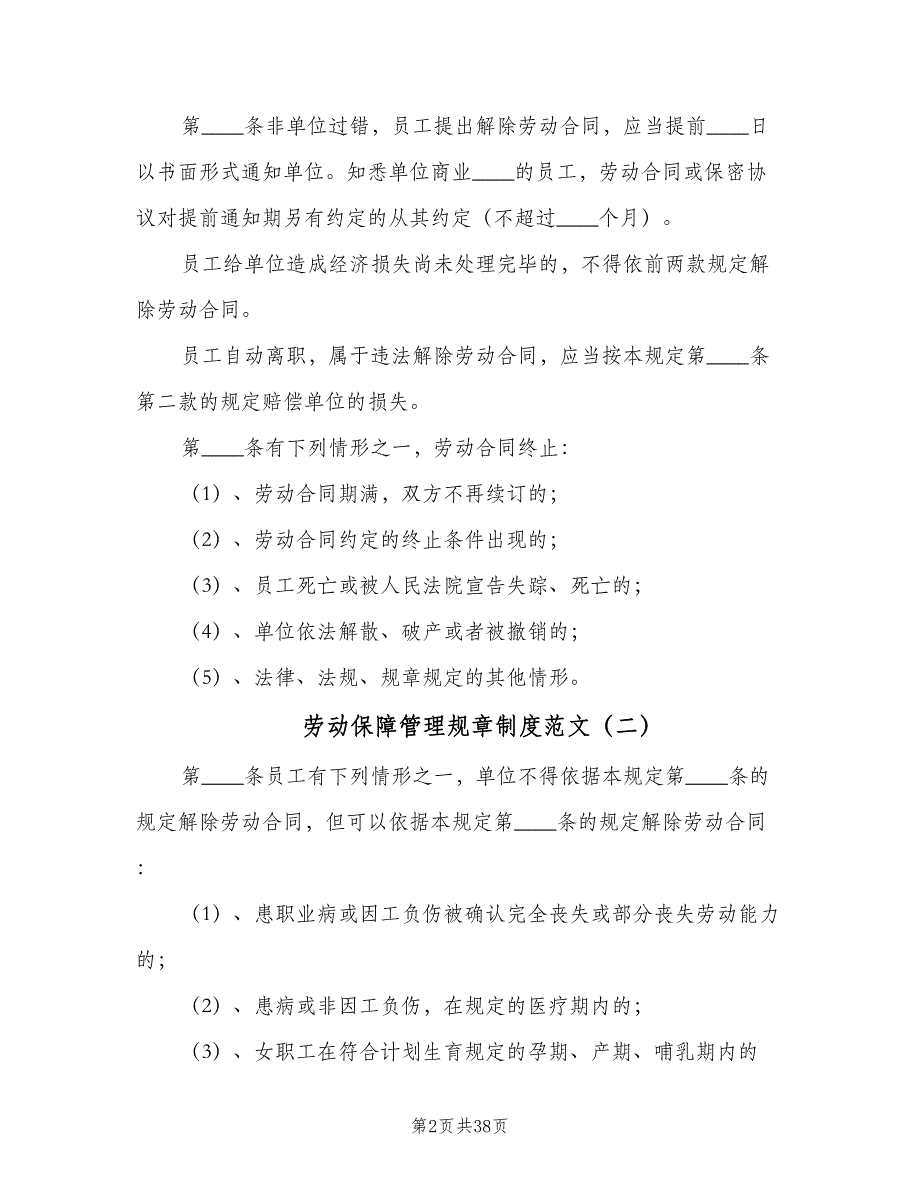 第____条非单位过错，员工提出解除劳动合同，应当提前____日
以书面形式通知单位。知悉单位商业____的员工，劳动合同或保密协
议对提前通知期另有约定的从其约定（不超过____个月）。
员工给单位造成经济损失尚未处理完毕的，不得依前两款规定解
除劳动合同。
员工自动离职，属于违法解除劳动合同，应当按本规定第____条
第二款的规定赔偿单位的损失。
第____条有下列情形之一，劳动合同终止：
（1）、劳动合同期满，双方不再续订的；
（2）、劳动合同约定的终止条件出现的；
（3）、员工死亡或被人民法院宣告失踪、死亡的；
（4）、单位依法解散、破产或者被撤销的；
（5）、法律、法规、规章规定的其他情形。
劳动保障管理规章制度范文（二）
第____条员工有下列情形之一，单位不得依据本规定第____条的
规定解除劳动合同，但可以依据本规定第____条的规定解除劳动合同
：
（1）、患职业病或因工负伤被确认完全丧失或部分丧失劳动能力
的；
（2）、患病或非因工负伤，在规定的医疗期内的；
（3）、女职工在符合计划生育规定的孕期、产期、哺乳期内的
第2页共38页